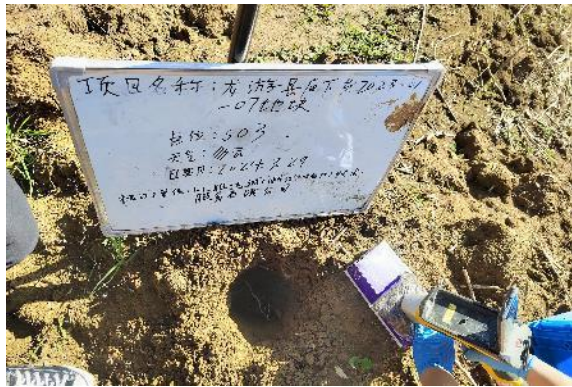 项目名称:龙游县庙下乡2023-01
-07地块
点位:S03
天气:多云
日期:2024.2.29
服务有限公司